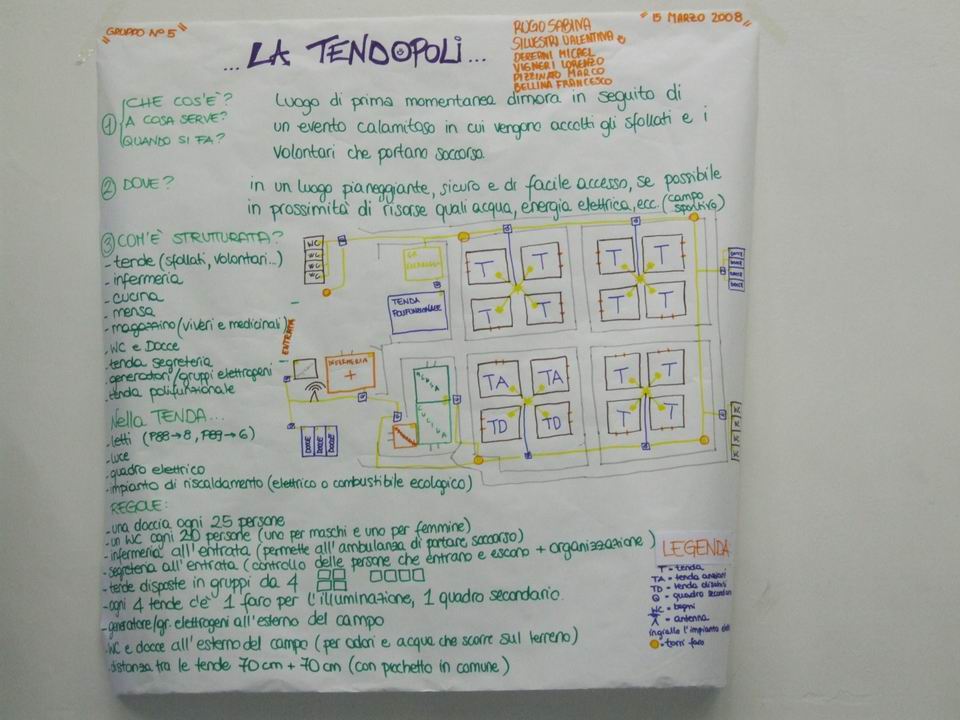 "GRUPPO N° 5"
"15 MARZO 2008"
...LA TENDOPOLI...
RUGO SABINA
SILVESTRI VALENTINA
DEREANI MICAEL
VIGNERI LORENZO
PIZZINATO MARCO
BELLINA FRANCESCO
① CHE COS'È?
A COSA SERVE?
QUANDO SI FA?
Luogo di prima momentanea dimora in seguito di
un evento calamitoso in cui vengono accolti gli sfollati e i
volontari che portano soccorso.
② DOVE?
in un luogo pianeggiante, sicuro e di facile accesso, se possibile
in prossimità di risorse quali acqua, energia elettrica, ecc. (campo
sportivo)
③ COM'È STRUTTURATA?
- tende (sfollati, volontari...)
- infermeria
- cucina
- mensa
- magazzino (viveri e medicinali)
- WC e Docce
- tenda segreteria
- generatori/gruppi elettrogeni
- tenda polifunzionale
WC
WC
WC
WC
TENDA
POLIFUNZIONALE
ENTRATA
INFERMERIA
+
MENSA
CUCINA
DOCCE
DOCCE
DOCCE
T T
T T
T T
T T
TA TA
TD TD
T T
T T
DOCCE
DOCCE
DOCCE
DOCCE
Nella TENDA...
- letti (P88→8, P89→6)
- luce
- quadro elettrico
- impianto di riscaldamento (elettrico o combustibile ecologico)
REGOLE:
- una doccia ogni 25 persone
- un WC ogni 20 persone (uno per maschi e uno per femmine)
- infermeria all'entrata (permette all'ambulanza di portare soccorso)
- segreteria all'entrata (controllo delle persone che entrano e escono + organizzazione)
- tende disposte in gruppi da 4
- ogni 4 tende c'è 1 faro per l'illuminazione, 1 quadro secondario.
- generatore/gr. elettrogeni all'esterno del campo
- WC e docce all'esterno del campo (per odori e acqua che scorre sul terreno)
- distanza tra le tende 70 cm + 70 cm (con picchetto in comune)
LEGENDA
T = tenda
TA = tenda anziani
TD = tenda disabili
Q = quadro secondari
WC = bagni
= antenna
in giallo l'impianto
= torri faro